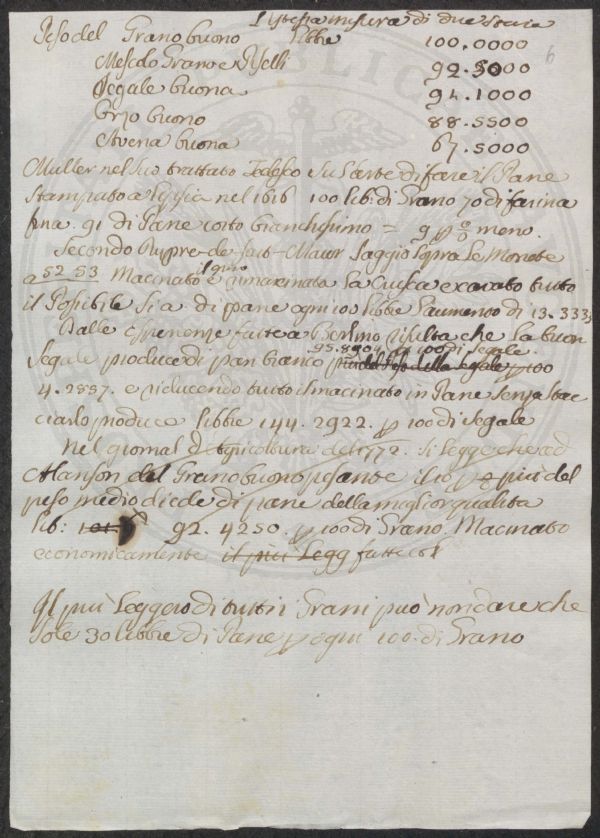 l'istessa misura di due Staia
Peso del Grano buono Libbre 100.0000
6
Mescolo Grano e Piselli 92.5000
Segale buona 94.1000
Orzo buono 88.5500
Avena buona 67.5000
Muller nel suo trattato Tedesco su l'arte di fare il Pane
Stampato a Lipsia nel 1616 100 lib: di Grano 70 di farina
fina. 91 di Pane cotto bianchissimo = 9 p % meno.
Secondo Saggio sopra le Monete
a 52 53 Macinato e rimacinato la Crusca e cavato tutto
il grano
il Possibile si a di pane ogni 100 libbre l'aumento di 13.333
Dalle esperienze fatte a Berlino risulta che la buon
95.890 p 100 di Segale.
Segale produce di pan bianco più del Peso della Segale p 100
4.2887. e riducendo tutto il macinato in Pane senza stac
ciarlo produce libbre 144.2922. p 100 di Segale
Nel giornal d'Agricoltura del 1772. si legge che ad
Alanson del Grano buono pesante il 10 p più del
peso medio diede di pane della miglior qualita
lib: 92.4250. p 100 di Grano Macinato
economicamente il più Legg
Il più Leggero di tutti i Grani può non dare che
Sole 30 libbre di Pane p ogni 100. di Grano